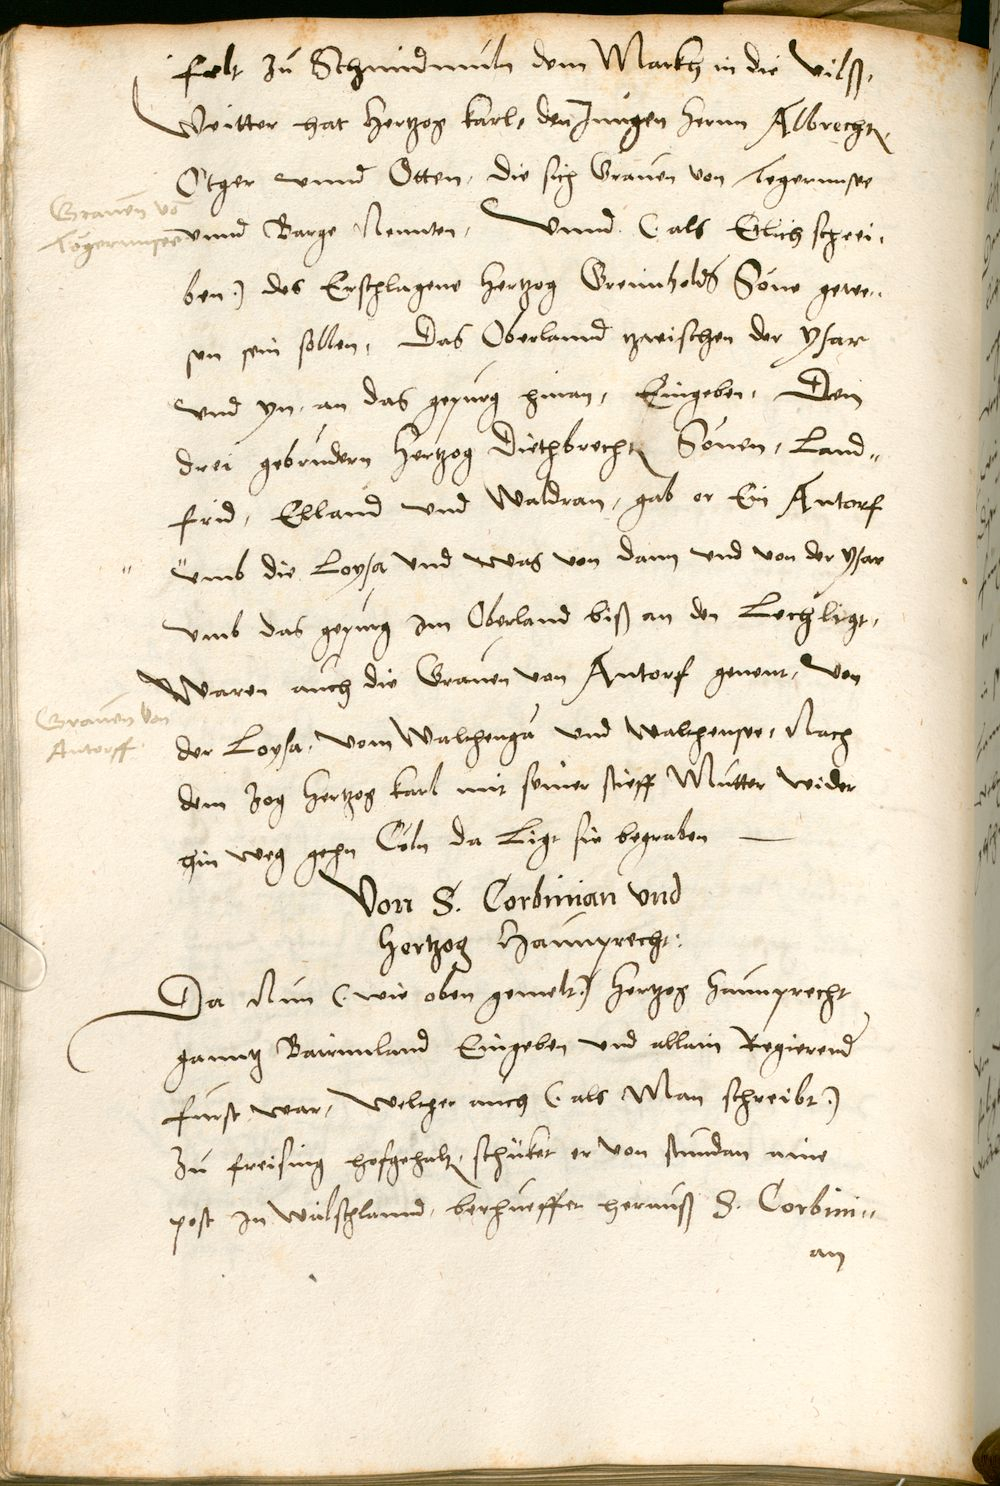 felt zu Schmidmuln dem Markh in die Vilß,
Weitter hat Hertzog karl, den Jungen herrn Albrecht,
Otger unnd Otten, die sich Grauen von Tegernnsee
Grauen vo
Tegernnsee
unnd Barge Nennten, Unnd (: als Etlich schrei,
ben :) des Erschlagene Hertzog Greimholds Söne gewe,,
sen sein sollen, Das Oberlannd zwischen der ysar
und yn, an das gepurg hinan, Eingeben, Den
drei gebrudern Hertzog Diethbrecht Sönen, Land,,
frid, Elland und Waldran, gab er Ein Antorf
umb die Loysa und was von dann und von der ysar
umb das gepurg im Oberland biß an den Lech ligt,
Waren auch die Grauen von Antorf genent, Von
Grauen von
Antorff
der Loysa, vom Walchengä und Walchensee, Nach
dem Zog Hertzog karl mit seiner stieff Mutter wider
hin weg gehn Cöln da Ligt sie begraben —
Von S. Corbinian und
Hertzog Haunprecht:
Da Nun (: wie oben gemelt :) Hertzog Haunprecht
ganntz Bairnnland Eingeben und allain Regierend
furst war, Welcher auch (: als Man schreibt :)
Zu freising hofgehalt, schikct er von stundan aine
post in wälschlannd, berhueffet herauß S. Corbini,,
an